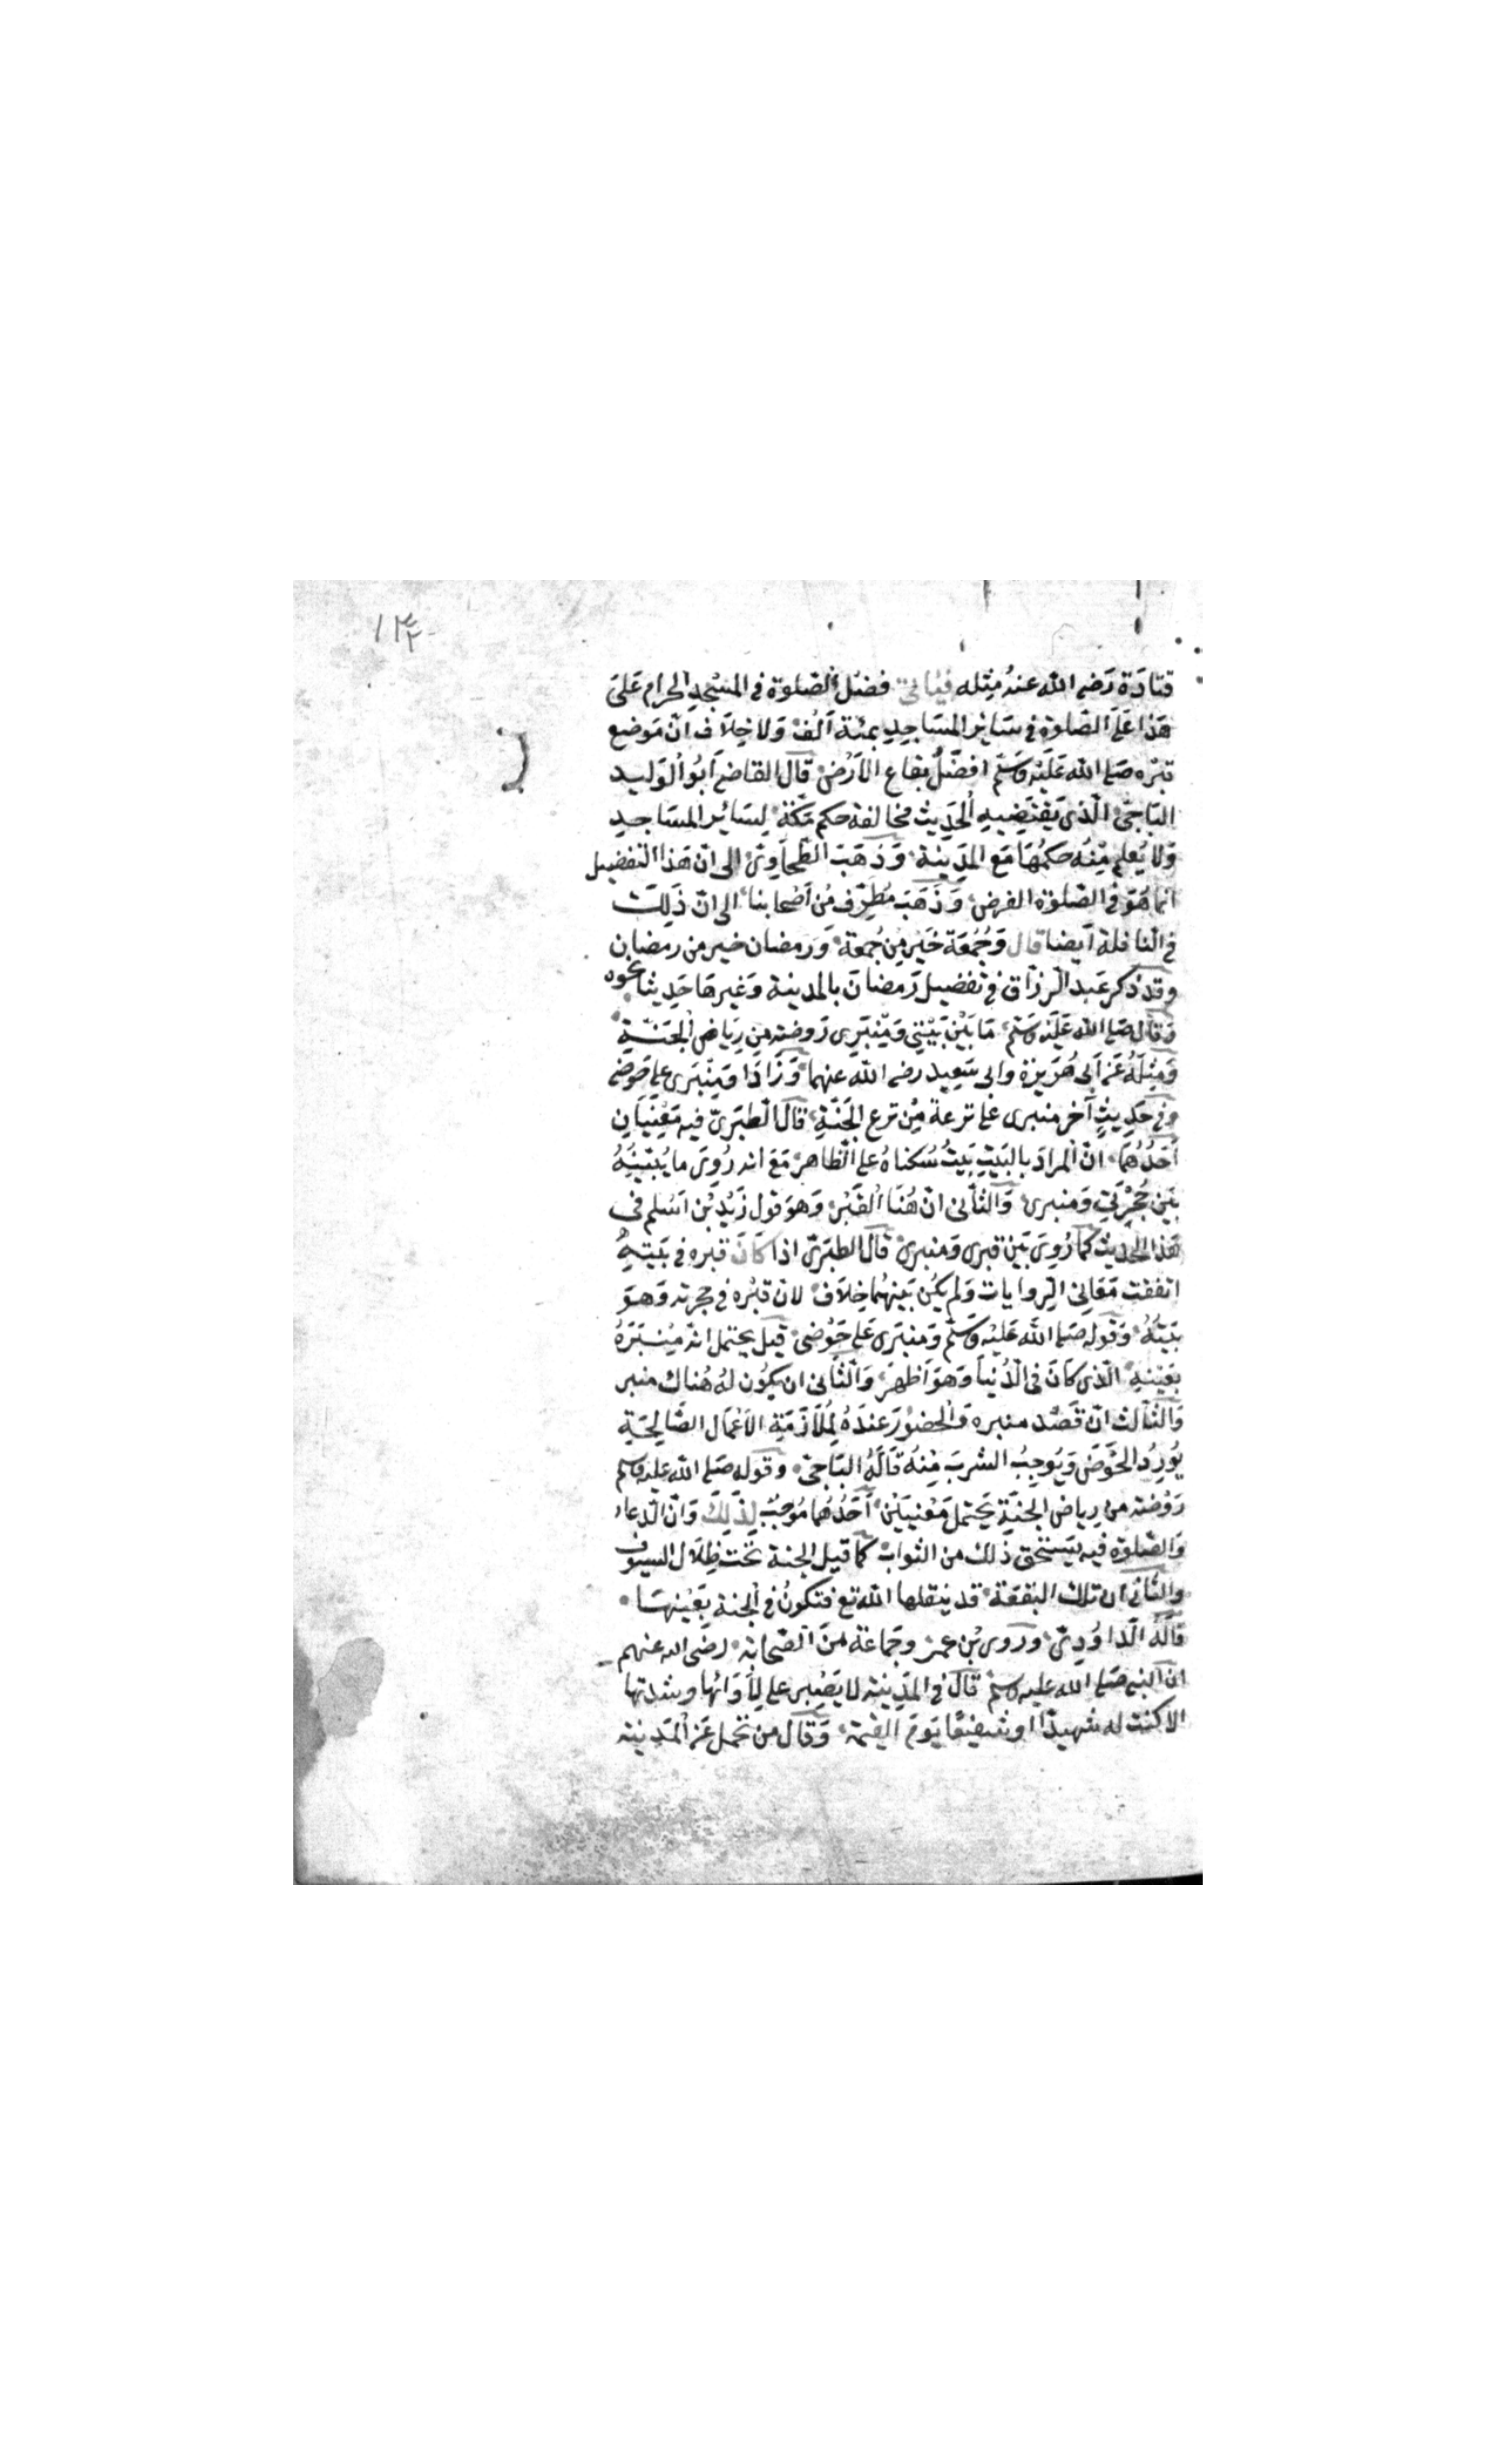 ١٣٢
قتادَة رَضي الله عنهُ مِثله فيَاتي فضْل الصّلوة في المسْجدِ الحرام عَلىَ
هَذا عَلَى الصّلوة في سَائِر المسَاجِدِ بمئة اَلف وَلا خِلاَف انّ مَوضع
قبْره صَلى الله عَليْه وَسَلّم افضَلُ بقاع الاَرْض قال القاضي اَبُو الوَليد
البَاجيّ الّذى يَقتَضِيهِ الحَديث مخالفة حكم مَكّة لِسَائر المسَاجِدِ
وَلا يُعلم مِنْه حكمُهَا مَع المدِينة وَذهَبَ الطّحاوىّ الى انّ هَذا التفضيل
انما هَوَ في الصّلوة الفرض وَذهَبَ مُطرّف مِن اَصْحابنا الى انّ ذلِكَ
في النافلة اَيضا قال وَجُمُعَة خَيْر مِن جُمعة وَرمضان خير من رمضان
وقد ذكر عَبد الرزّاق في تفضيل رَمضانَ بالمدينة وَغيرهَا حَديثا نحوه
وَقال صَلى الله عَليْه وَسَلم مَا بَيْن بَيْتِي وَمِنْبَرى رَوضة مِن رِيَاض الجَنَّةِ
وَمِثلهُ عَن اَبى هُرَيرَة وابى سَعِيد رضي الله عنهما وَزَادَا وَمِنْبَرى عَلى حَوضى
وفي حَدِيثٍ آخر منبرى على ترعة مِن ترع الجَنَّةِ قال الطبَرىّ فيه مَعْنيَانِ
اَحَدُهُمَا انّ المرادَ بالبَيتِ بَيتُ سُكناهُ عَلى الظاهر مَعَ انه رُوىَ ما يُبَيّنُهُ
بَين حُجْرَتى وَمنبرى وَالثانى انّ هُنَا القبْر وَهوَ قول زَيْدِ بْن اَسْلم في
هَذا الحديث كما رُوىَ بَين قبرى وَمنبرى قال الطبَرىّ اذا كَانَ قبره في بَيتِهِ
اتفقت مَعَانى الرّوايات وَلم يكن بَينهُمَا خِلاَف لان قبْره في حجرته وَهوَ
بَيتُهُ وَقوله صَلى الله عَليْه وَسَلّم وَمنبَرى عَلى حَوْضى قيل يحتمل انّه مِنْبَرَهُ
بعَيْنِهِ الّذى كَانَ في الدّنيَا وَهوَ اَظهَر وَالثّانى ان يكوُن لهُ هُناك منبر
وَالثالث انّ قَصْد منبره وَالحضُورَ عندَهُ لِمُلاَزَمَةِ الاَعْمَال الصّالِحَةِ
يُورِدُ الحَوْضَ وَيُوجِبُ الشربَ مِنهُ قَالَهُ البَاجيّ وقوله صَلى الله عليه وسلم
رَوْضة مِن رِياض الجنّةِ يَحتمل مَعْنيَيْن اَحَدُهُما مُوجبٌ لِذلِكَ وَانّ الدّعاء
وَالصّلوة فيه يَستحق ذلك من الثواب كما قيل الجنة تحت ظِلاَل السيوف
والثّانى انّ تلك البُقعَة قد ينقلها الله تع فتكونُ في الجنة بعَيْنهَا
قَالَهُ الدّاوُدِىّ وروى بْن عمر وجَمَاعَة مِنَ الصّحابة رضَى الله عنهم
انّ النبي صَلى الله عليه وَسَلم قال في المدِينة لا يَصْبِر على لأوَائها وشدتها
الا كنت له شهيدًا او شفيعًا يَومَ القيمة وَقال من تحمل عَن المدِينة